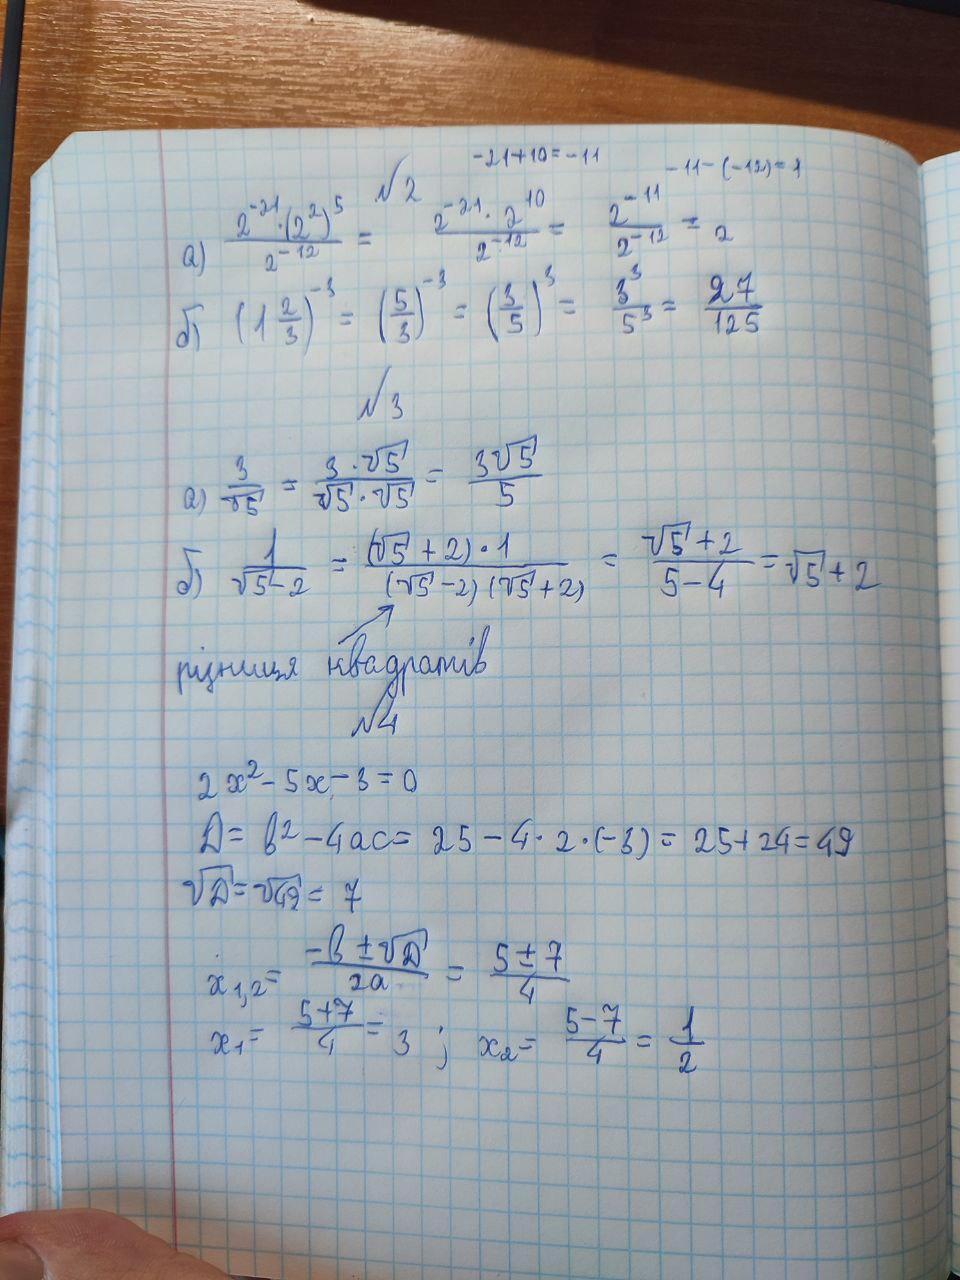 №2
-21+10=-11
-11-(-12)=1
а) \frac{2^{-21}·(2^2)^5}{2^{-12}} = \frac{2^{-21}·2^{10}}{2^{-12}} = \frac{2^{-11}}{2^{-12}} = 2
б) (1\frac{2}{3})^{-3} = (\frac{5}{3})^{-3} = (\frac{3}{5})^3 = \frac{3^3}{5^3} = \frac{27}{125}
№3
а) \frac{3}{√5} = \frac{3·√5}{√5·√5} = \frac{3√5}{5}
б) \frac{1}{√5-2} = \frac{(√5+2)·1}{(√5-2)(√5+2)} = \frac{√5+2}{5-4} = √5+2
різниця квадратів
№4
2x²-5x-3=0
D=b²-4ac=25-4·2·(-3)=25+24=49
√D=√49=7
x_{1,2}=\frac{-b±√D}{2a}=\frac{5±7}{4}
x_1=\frac{5+7}{4}=3; x_2=\frac{5-7}{4}=\frac{1}{2}